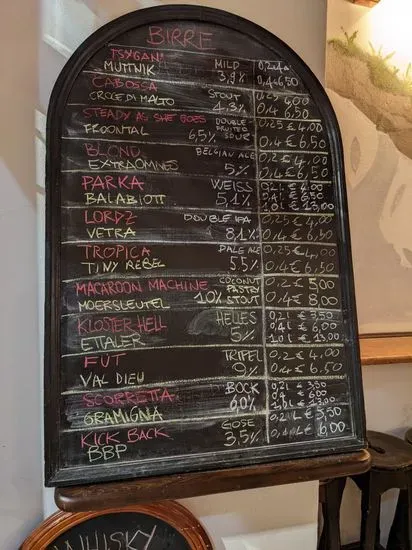 BIRRE
TSYGAN MILD 0,2 € 4
MUTTNIK 3,9% 0,4 € 6,50
CABOSSA STOUT 0,25 € 4,00
CROCE DI MALTO 4,3% 0,4 € 6,50
STEADY AS SHE GOES DOUBLE FRUITED SOUR 0,25 € 4,00
FROONTAL 6,5% 0,4 € 6,50
BLOND BELGIAN ALE 0,2 € 4,00
EXTRAOMNES 5% 0,4 € 6,50
PARKA WEISS 0,2 l € 4,00
BALABIOTT 5,1% 0,4 l € 6,50
1,0 l € 13,00
LORDZ DOUBLE IPA 0,25 € 4,00
VETRA 8,1% 0,4 € 6,50
TROPICA PALE ALE 0,25 € 4,00
TINY REBEL 5.5% 0,4 € 6,50
MACAROON MACHINE COCONUT PASTRY STOUT 0,2 € 5,00
MOERSLEUTEL 10% 0,4 € 8,00
KLOSTER HELL HELLES 0,2 l € 3,50
ETTALER 5% 0,4 l € 6,00
1,0 l € 13,00
FUT TRIPEL 0,2 € 4,00
VAL DIEU 9% 0,4 € 6,50
SCORRETTA BOCK 0,2 l € 3,50
GRAMIGNA 6,0% 0,4 l € 6,00
1,0 l € 13,00
KICK BACK GOSE 0,2 l € 3,50
BBP 3,5% 0,4 l € 6,00
WHISKY